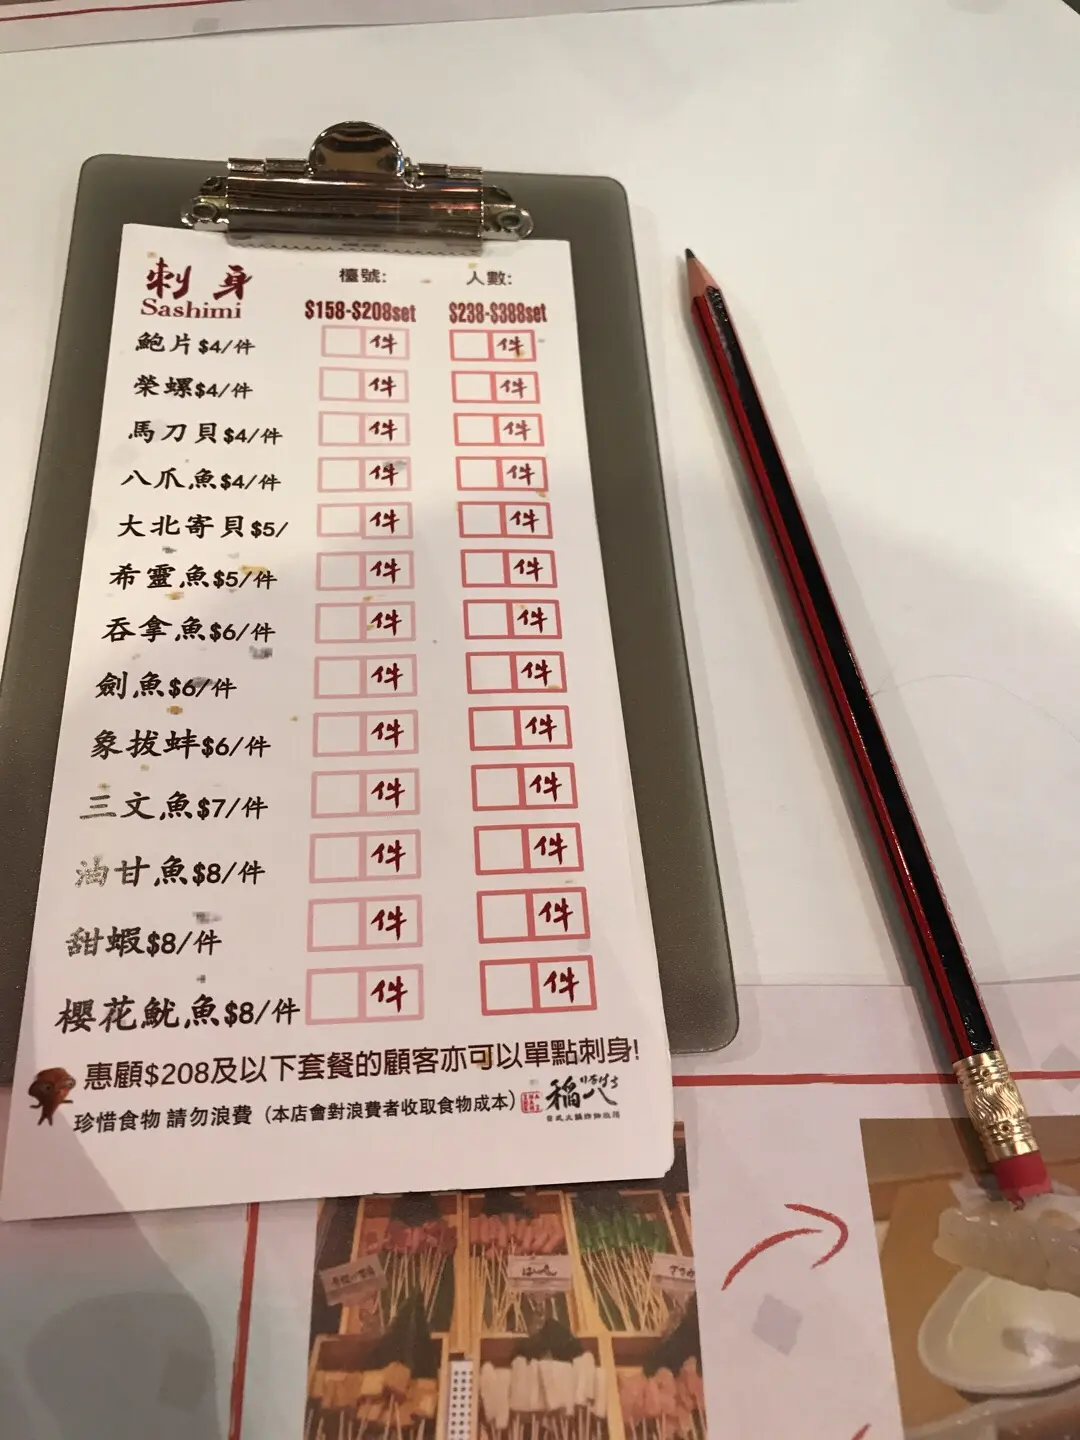 刺身 檯號: 人數:
Sashimi $158-$208set $238-$388set
鮑片$4/件 件 件
榮螺$4/件 件 件
馬刀貝$4/件 件 件
八爪魚$4/件 件 件
大北寄貝$5/ 件 件
希靈魚$5/件 件 件
吞拿魚$6/件 件 件
劍魚$6/件 件 件
象拔蚌$6/件 件 件
三文魚$7/件 件 件
油甘魚$8/件 件 件
甜蝦$8/件 件 件
櫻花魷魚$8/件 件 件
惠顧$208及以下套餐的顧客亦可以單點刺身!
珍惜食物 請勿浪費 (本店會對浪費者收取食物成本) 稲八